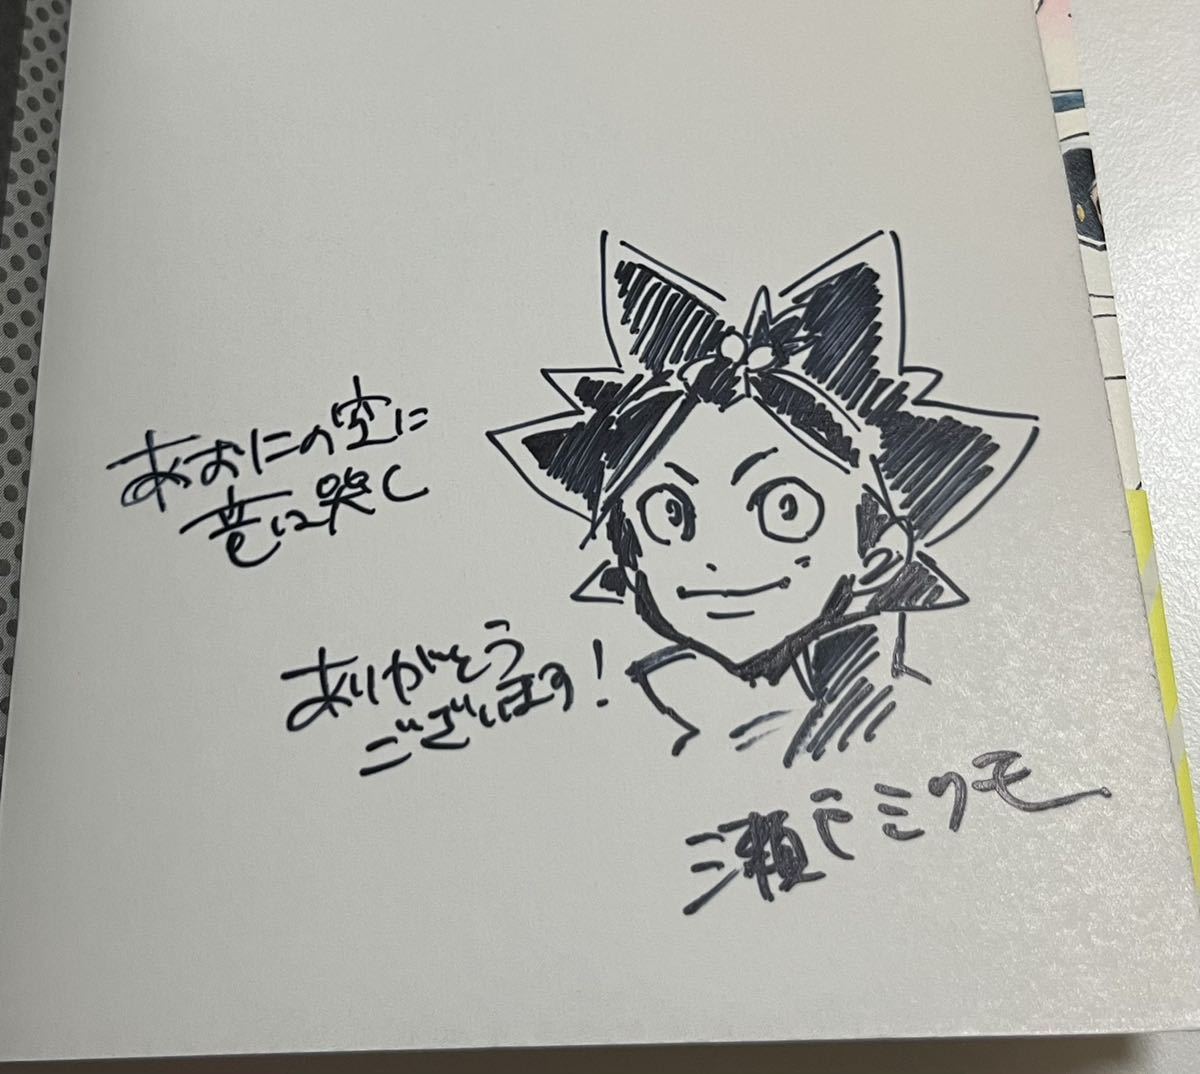 あおにの空に
竜は哭く
ありがとう
ございます!
瀬戸ミクモ